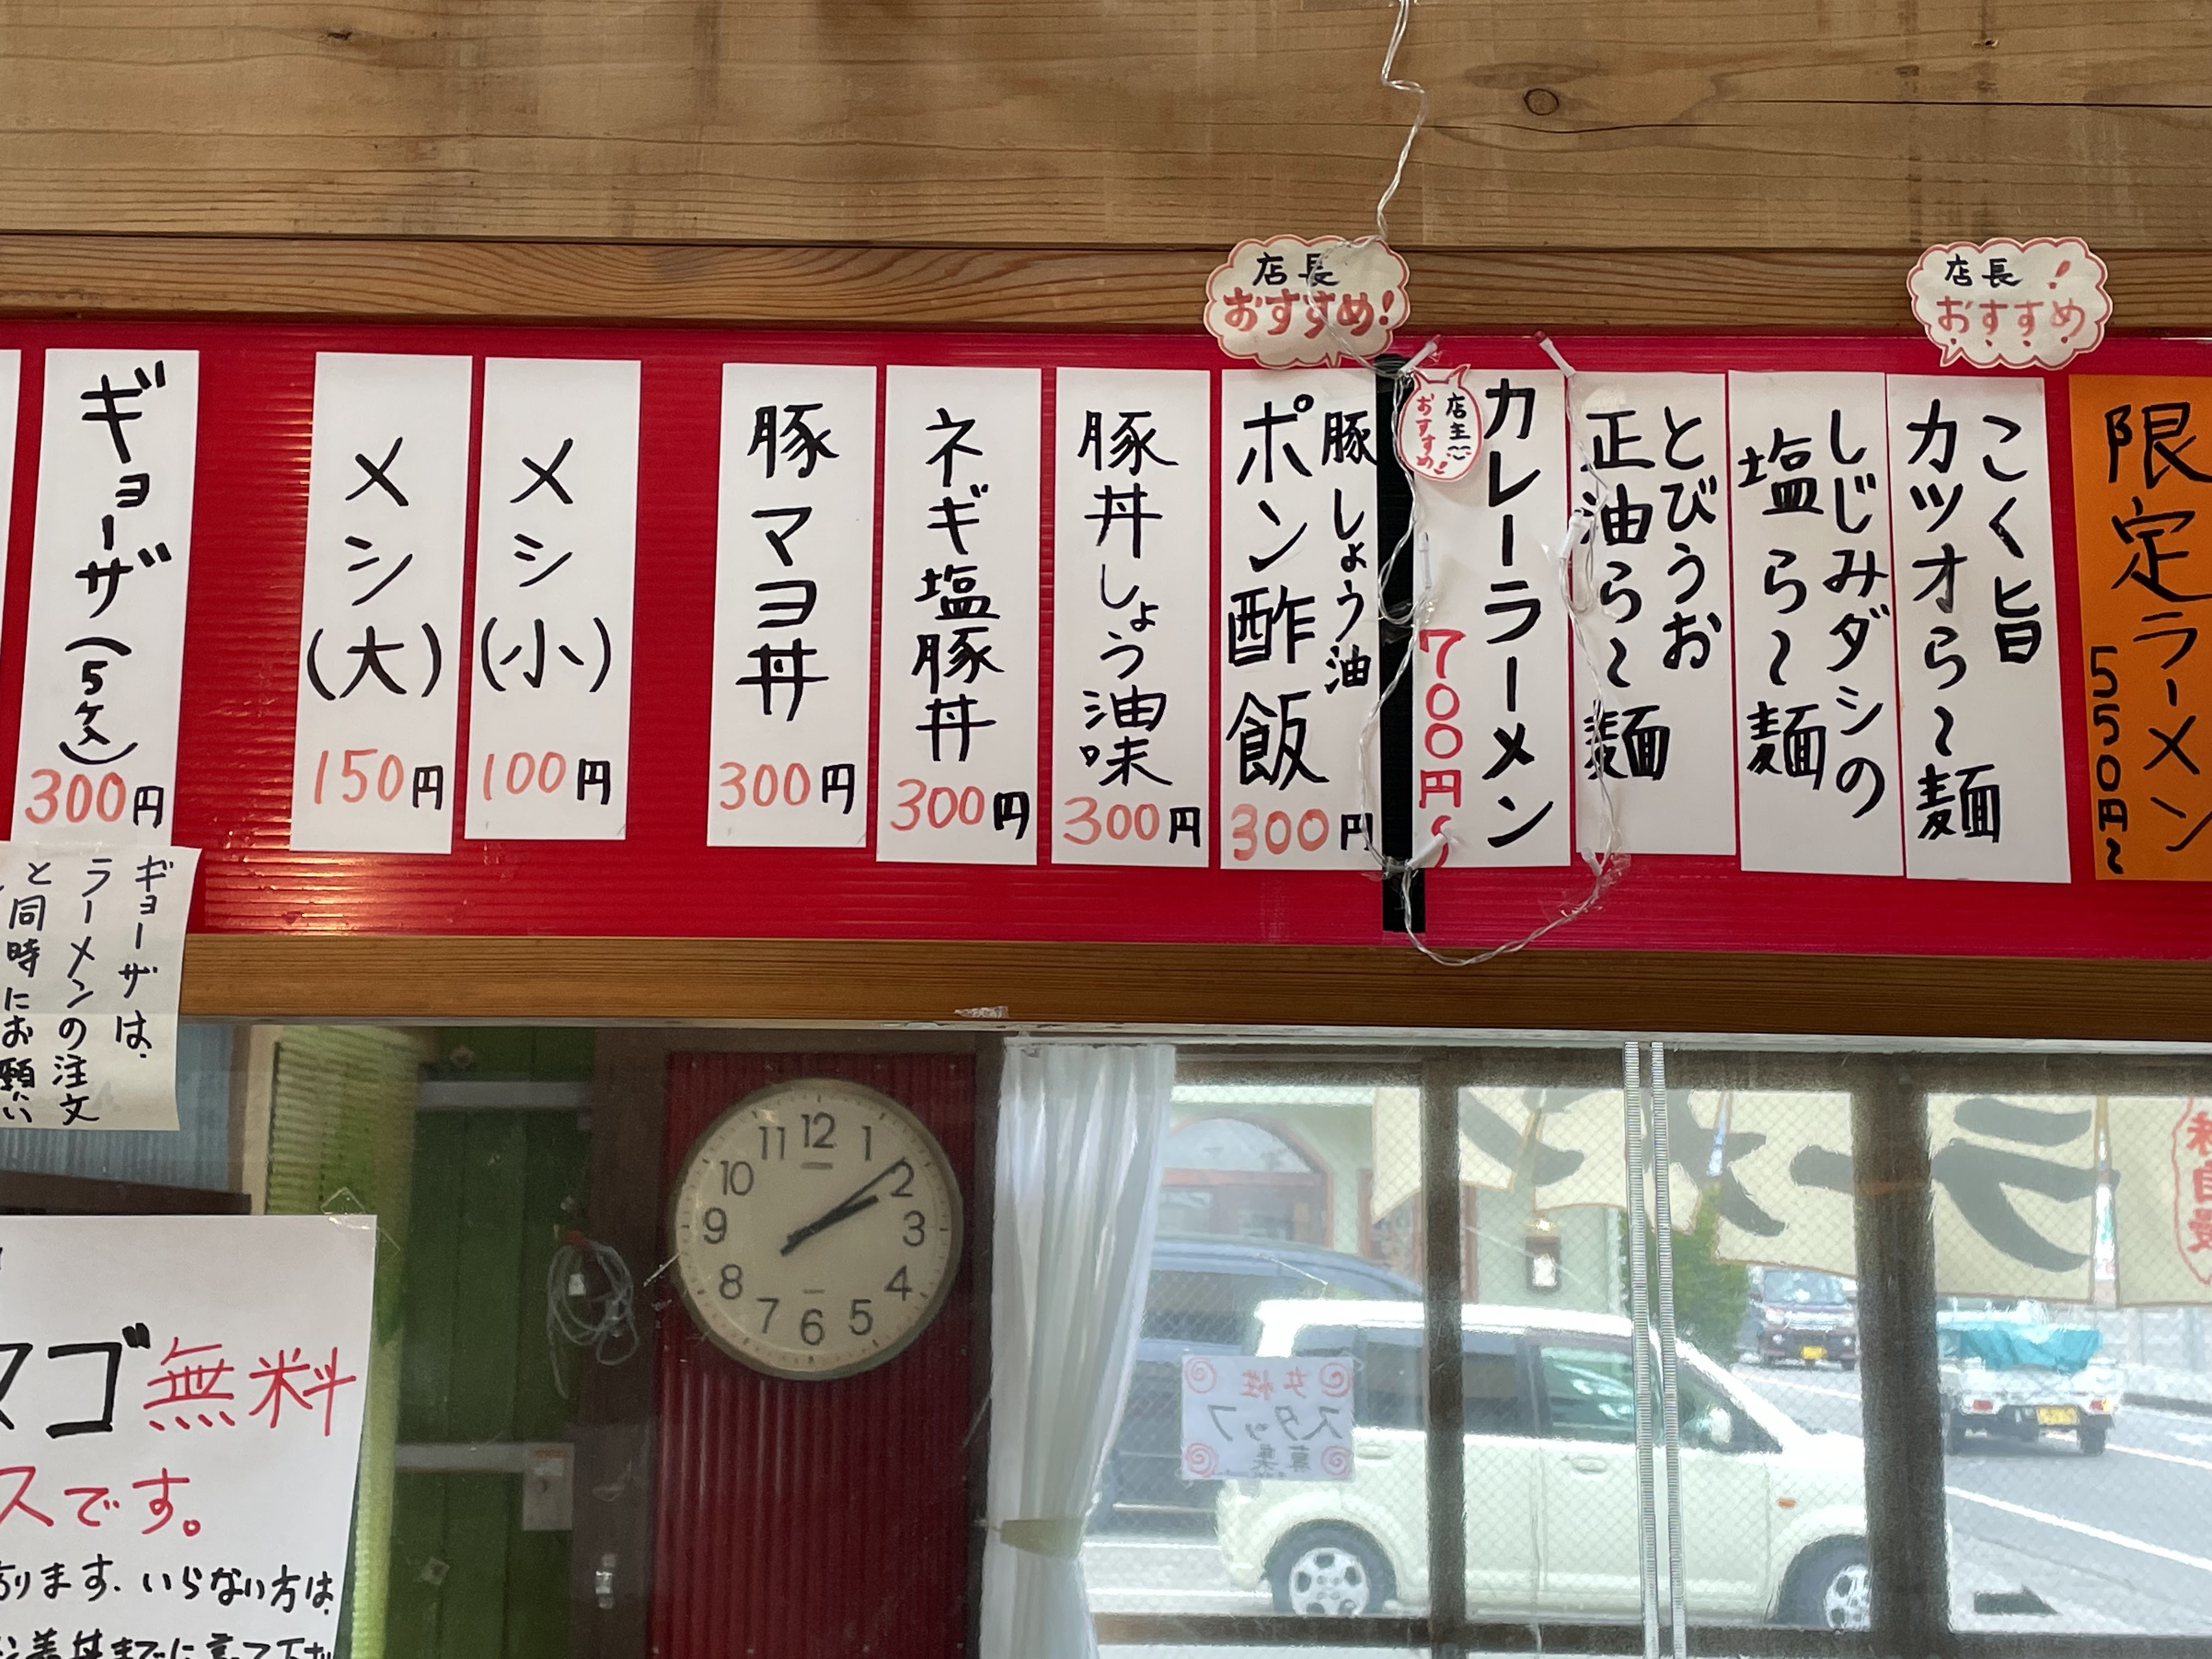 店長
おすすめ!
店長!
おすすめ
限定ラーメン
550円〜
こく旨
カツオら〜麺
しじみダシの
塩ら〜麺
とびうお
正油ら〜麺
カレーラーメン
700円〜
店主
おすすめ!
豚しょう油
ポン酢飯
300円
豚丼しょう油味
300円
ネギ塩豚丼
300円
豚マヨ丼
300円
メシ(小)
100円
メシ(大)
150円
ギョーザ(5ケ入)
300円
ギョーザは、
ラーメンの注文
と同時にお願い
12
1
2
3
4
5
6
7
8
9
10
11
マゴ無料
スです。
あります。いらない方は、
女性
スタッフ
募集
ラーメン